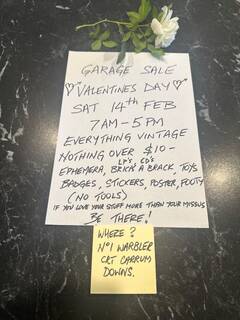 GARAGE SALE
VALENTINES DAY
SAT 14TH FEB
7AM - 5PM
EVERYTHING VINTAGE
NOTHING OVER $10 -
LP'S CD'S
EPHEMERA, BRICK A BRACK, TOYS
BADGES, STICKERS, POSTER, FOOTY
(NO TOOLS)
IF YOU LOVE YOUR STUFF MORE THAN YOUR MISSUS
BE THERE!
WHERE?
Nº1 WARBLER
CRT CARRUM
DOWNS.